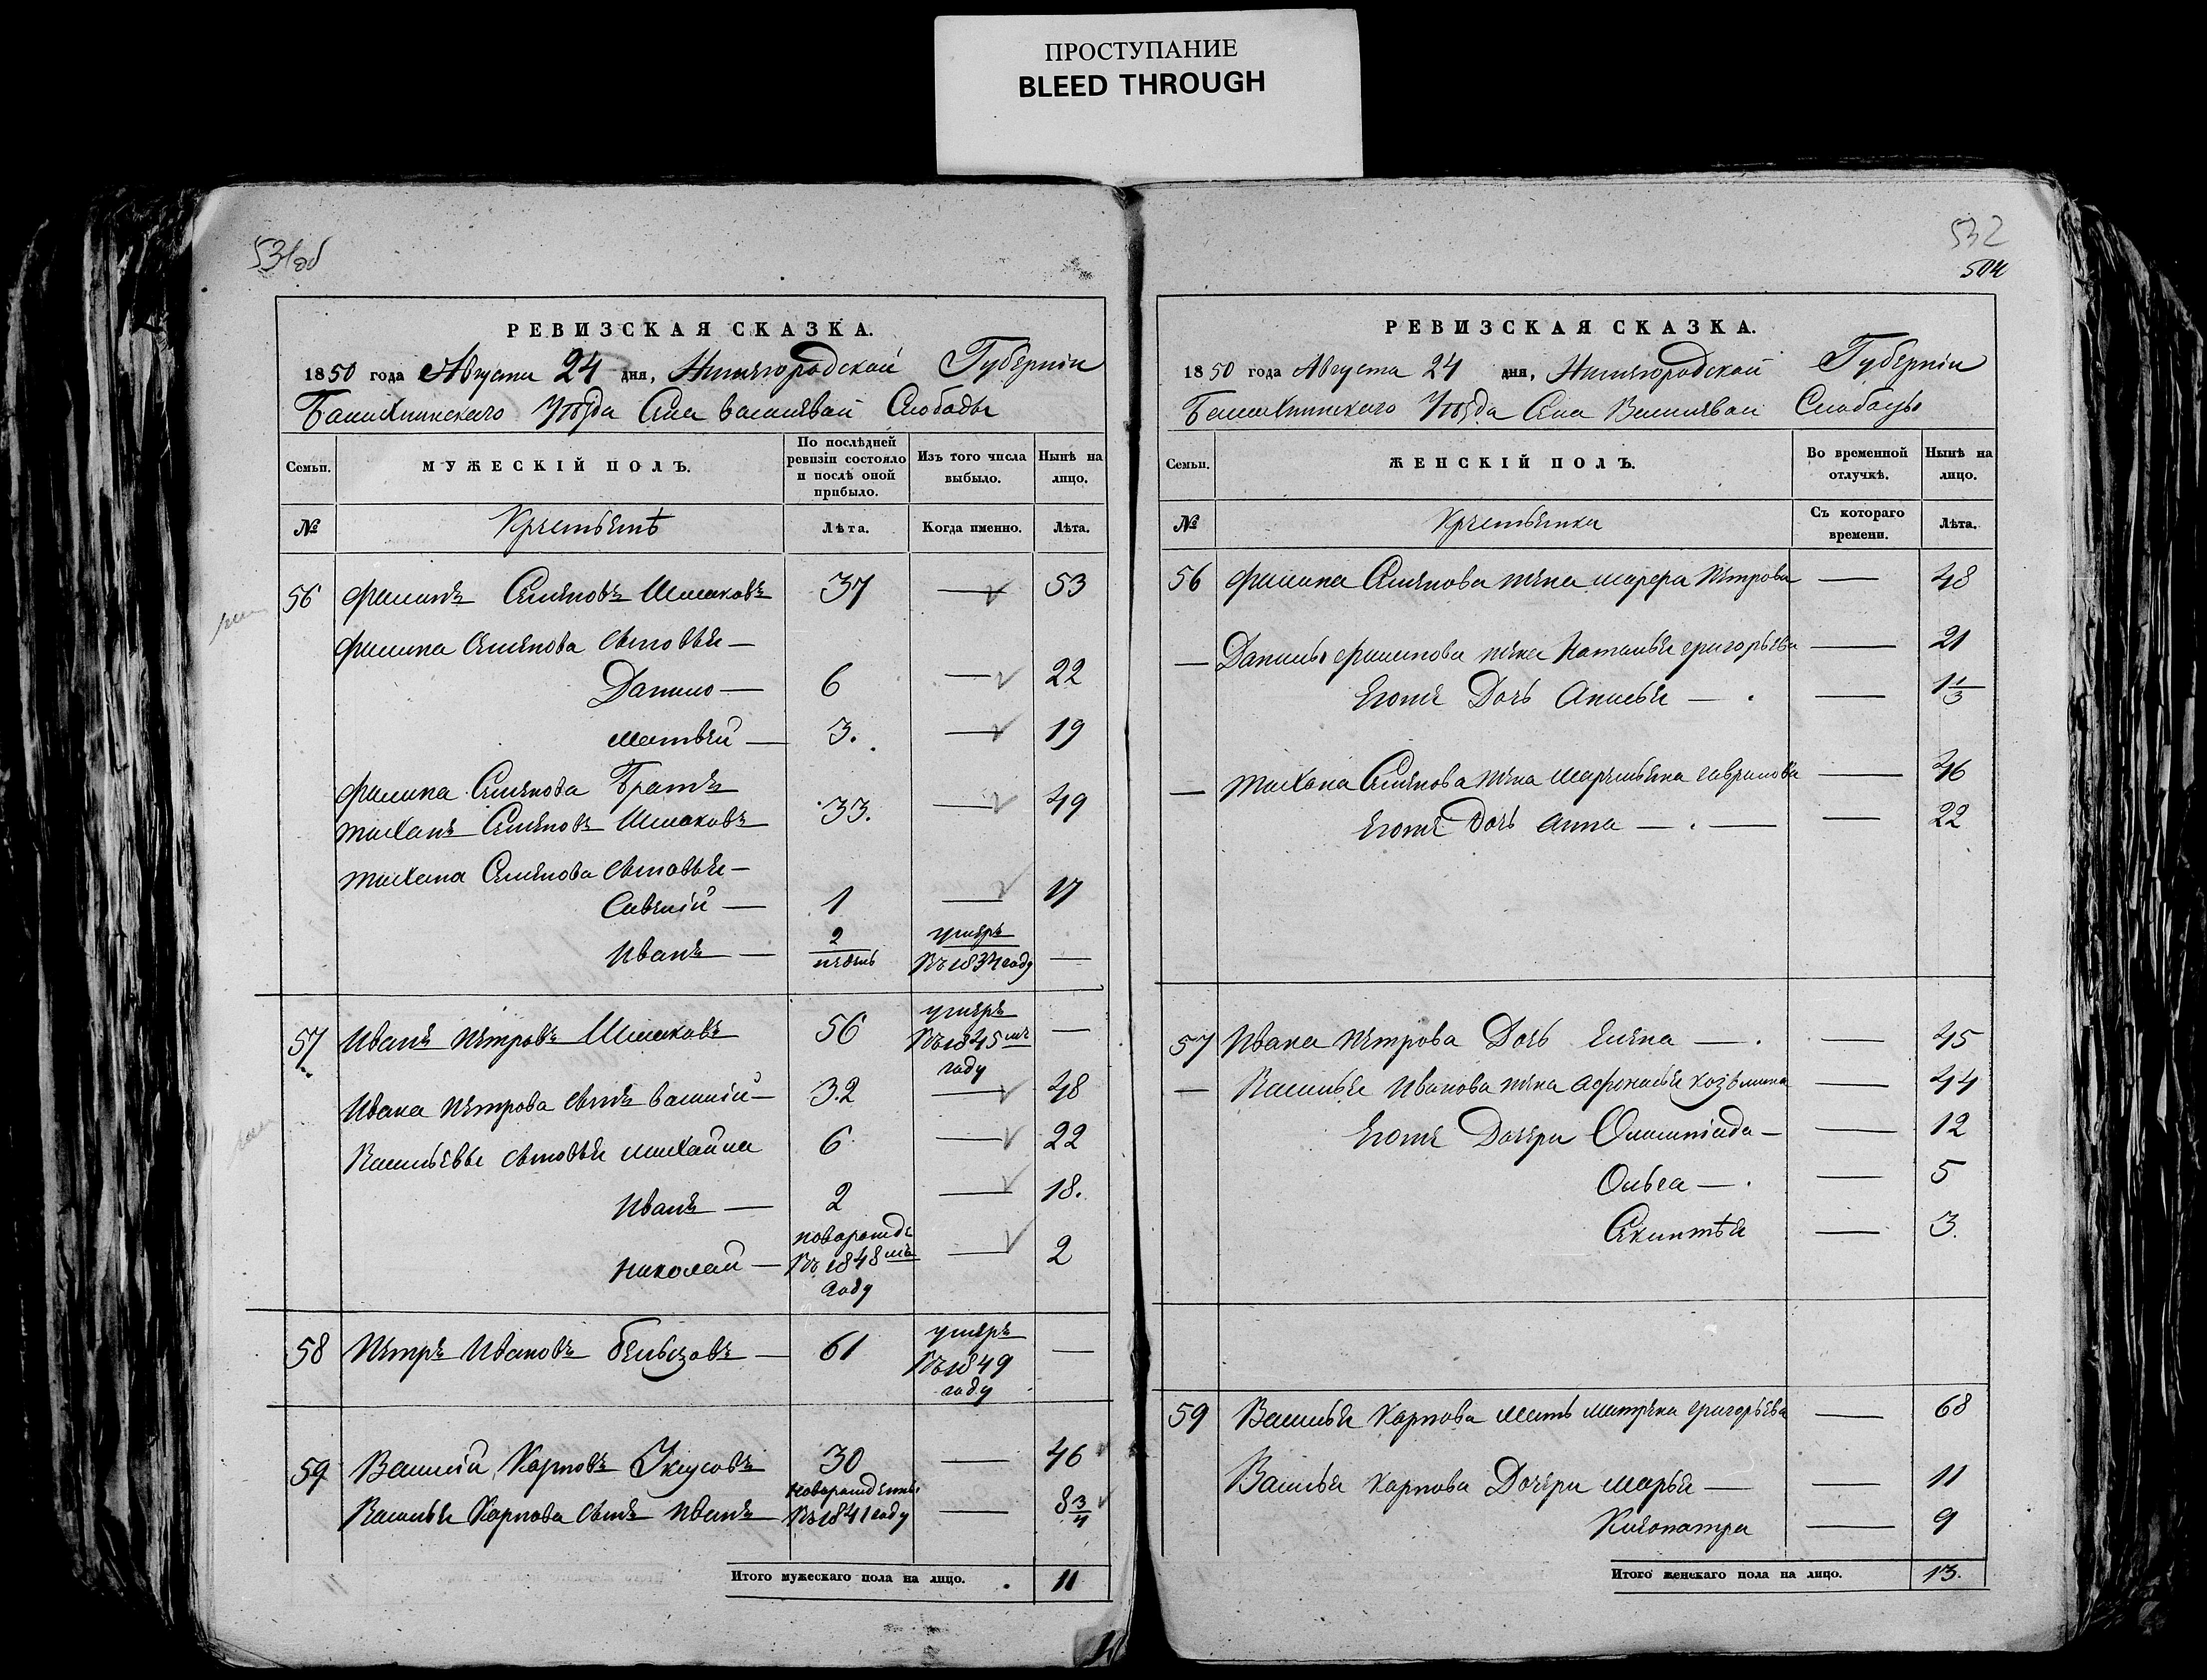 ПРОСТУПАНИЕ
BLEED THROUGH
531об
РЕВИЗСКАЯ СКАЗКА.
1850 года Августа 24 дня, Нижегородской Губернiи
Уѣзда Села Слободы
Семьи. МУЖЕСКIЙ ПОЛЪ. По послѣдней ревизiи состояло и послѣ оной прибыло. Изъ того числа выбыло. Нынѣ на лицо.
№ Лѣта. Когда именно. Лѣта.
56 Филипъ Семеновъ Шмаковъ 37 — 53
Филипа Семенова сыновья —
Данило — 6 — 22
Матвей — 3. — 19
Филипа Семенова Братъ
Тихонъ Семеновъ Шмаковъ 33. — 49
Тихона Семенова сыновья —
Савелiй — 1 — 17
Иванъ — 2 недель умеръ въ 1834 году —
57 Иванъ Петровъ Шмаковъ 56 умеръ въ 1845 мъ году —
Ивана Петрова сынъ Василiй — 32 — 48
Васильевы сыновья Михайла 6 — 22
Иванъ — 2 — 18.
Николай — въ 1848 мъ году — 2
58 Петръ Ивановъ 61 умеръ въ 1849 году —
59 Василiй Карповъ 30 — 46
Василья Карпова сынъ Иванъ въ 1841 году — 8 3/4
Итого мужескаго пола на лицо. 11
532
504
РЕВИЗСКАЯ СКАЗКА.
1850 года Августа 24 дня, Нижегородской Губернiи
Уѣзда Села Слободы
Семьи. ЖЕНСКIЙ ПОЛЪ. Во временной отлучкѣ. Нынѣ на лицо.
№ Съ котораго времени. Лѣта.
56 Филипа Семенова жена Марфа Петрова — 48
— Данилы Филипова жена Наталья Григорьева — 21
Егоже Дочь — 1 1/3
— Тихона Семенова жена Гаврилова — 46
Егоже Дочь Анна — — 22
57 Ивана Петрова Дочь Елена — — 45
— Василья Иванова жена Афонасья Козьмина — 44
Егоже Дочери Олимпiада — — 12
Ольга — — 5
— 3.
59 Василья Карпова Мать Матрена Григорьева — 68
Василья Карпова Дочери Марья — — 11
Клеопатра — 9
Итого женскаго пола на лицо. 13.